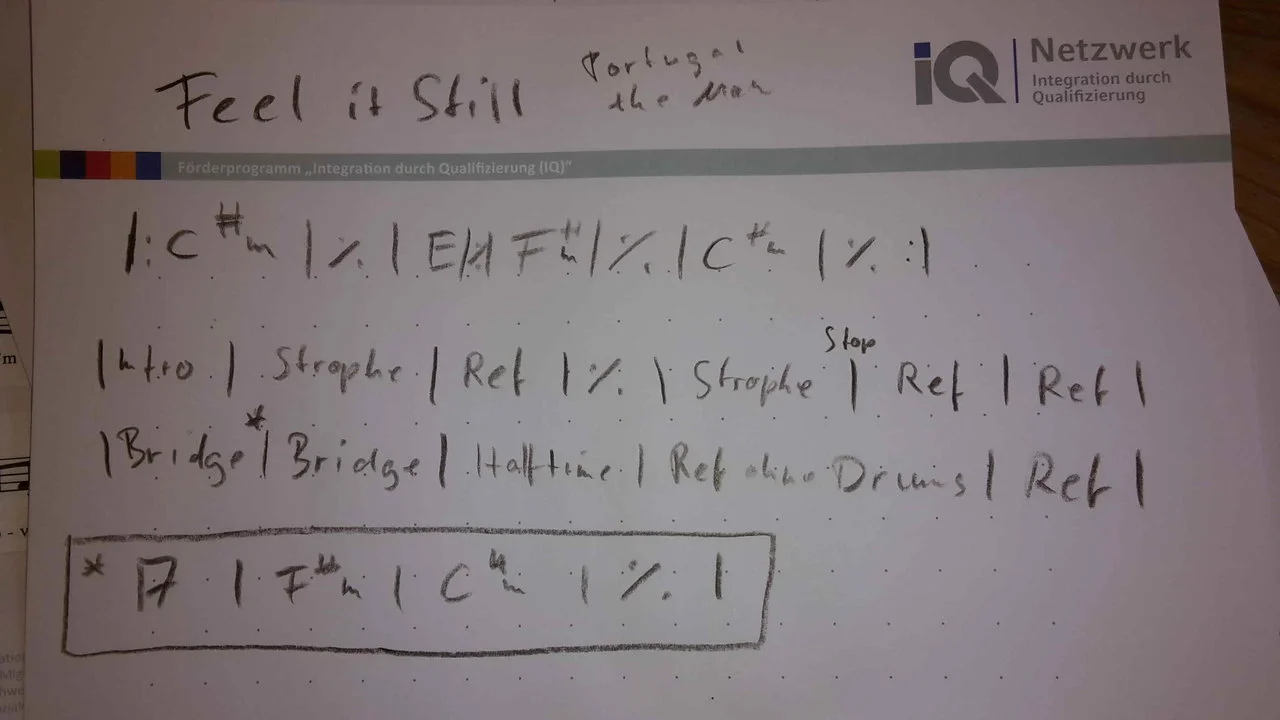 Feel it Still Portugal the Man
iQ Netzwerk
Integration durch
Qualifizierung
Förderprogramm „Integration durch Qualifizierung (IQ)“
|: C#m | % | E | F#m | % | C#m | % :|
Stop
| Intro | Strophe | Ref | % | Strophe | Ref | Ref |
| Bridge* | Bridge | Halftime | Ref ohne Drums | Ref |
* | F#m | C#m | % |